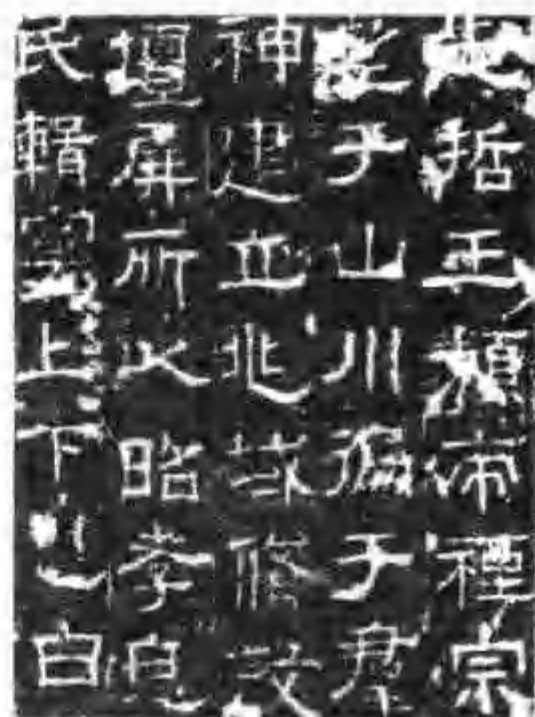 先哲王類帝禋宗
望于山川徧于羣
神建立兆域脩設
壇屏所以昭孝息
民輯寧上下也白